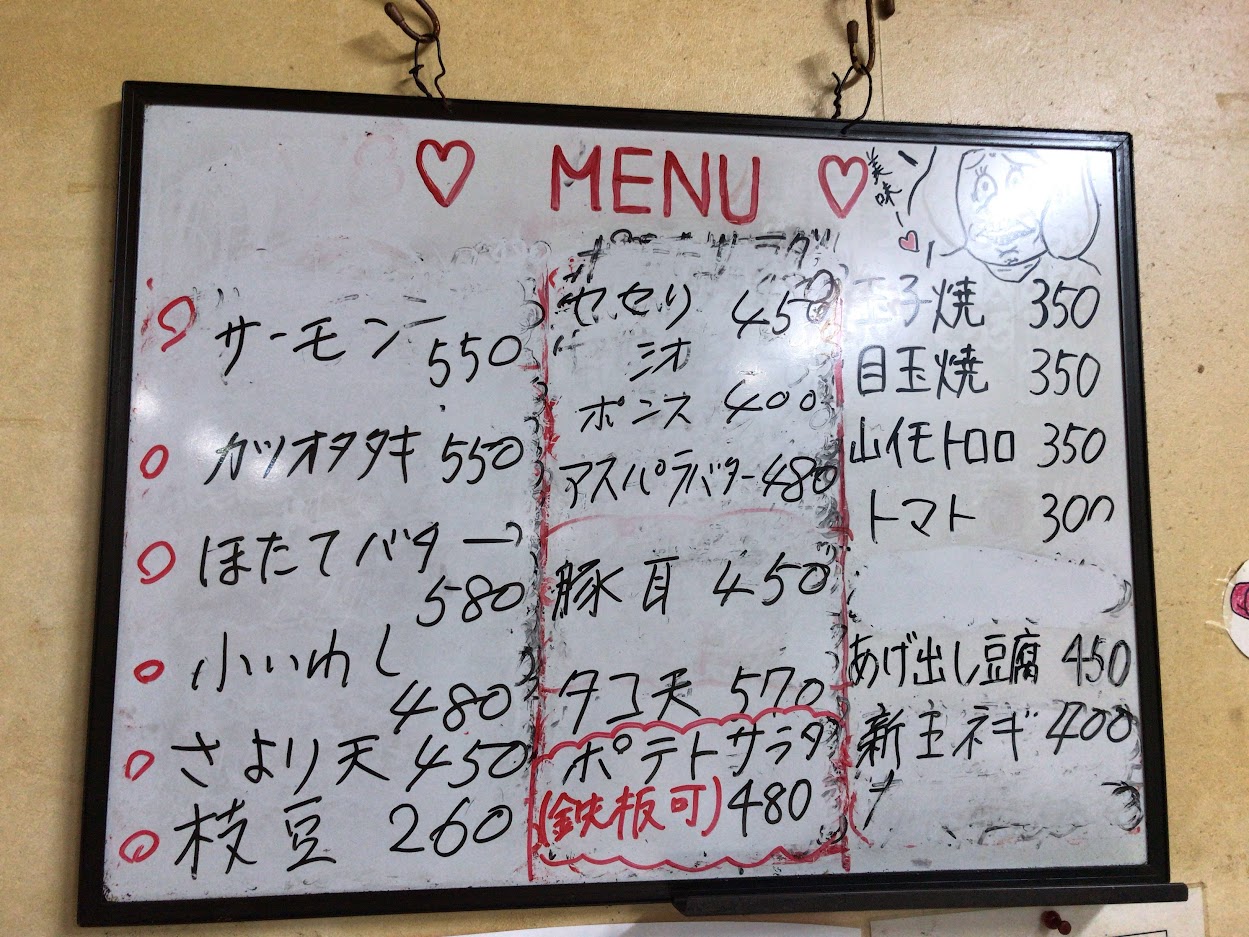 MENU
美味
サーモン
550
カツオタタキ 550
ほたてバター
580
小いわし
480
さより天 450
枝豆 260
セセリ 450
シオ
ポンズ 400
アスパラバター 480
豚耳 450
タコ天 570
ポテトサラダ
(鉄板可) 480
玉子焼 350
目玉焼 350
山イモトロロ 350
トマト 300
あげ出し豆腐 450
新玉ネギ 400